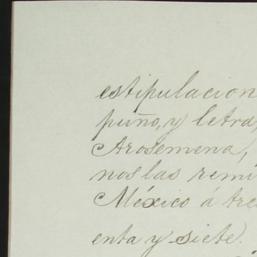 estipulacion
puño, y letra,
Arosemena,
nos las remi
México á tre
enta y siete.